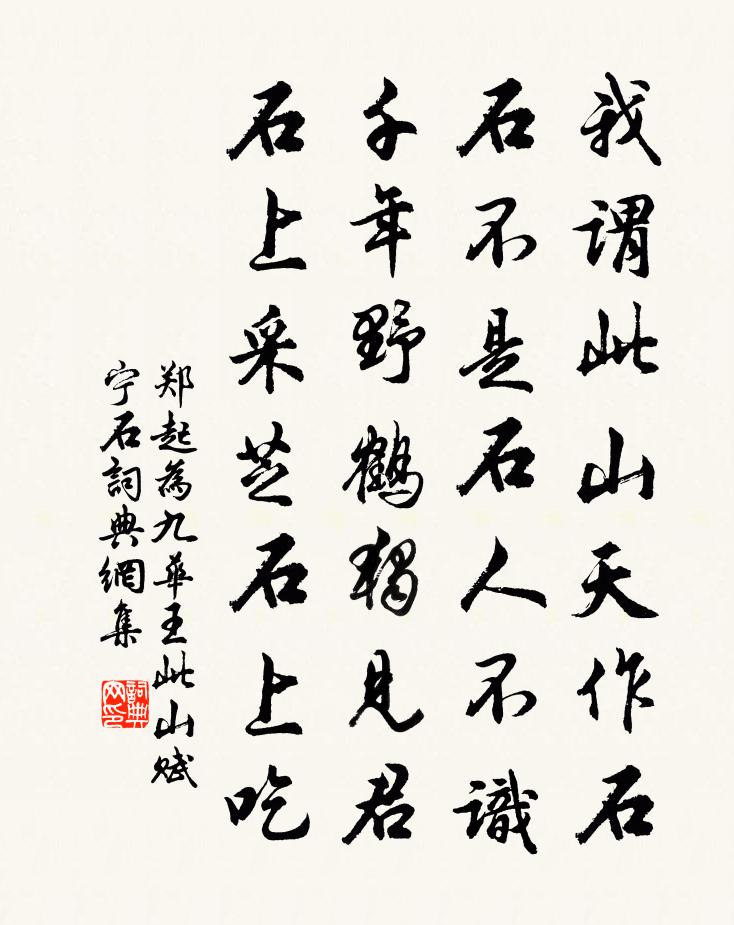 我謂此山天作石
石不是石人不識
千年野鶴獨見君
石上采芝石上吃
郑起為九華王此山賦
宁石詞典網集
詞典网印